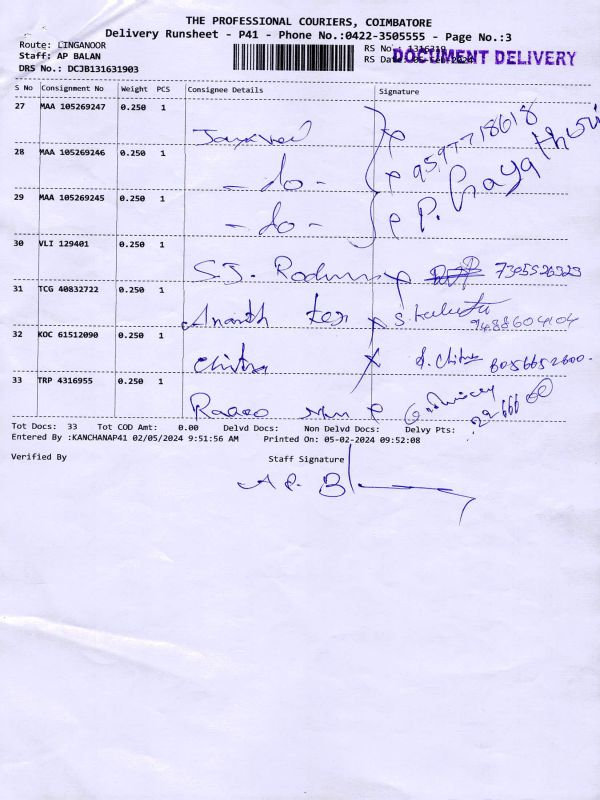 THE PROFESSIONAL COURIERS, COIMBATORE
Delivery Runsheet - P41 - Phone No.:0422-3505555 - Page No.:3
Route: LINGANOOR
Staff: AP BALAN
DRS No.: DCJB131631903
RS No
RS Dat
DOCUMENT DELIVERY
S No Consignment No Weight PCS Consignee Details Signature
27 MAA 105269247 0.250 1
9597718618
28 MAA 105269246 0.250 1
- do -
29 MAA 105269245 0.250 1
- do - P.
30 VLI 129401 0.250 1
S.J.
31 TCG 40832722 0.250 1
Ananth Tex 9488604104
32 KOC 61512090 0.250 1
Chitra S. Chitra
33 TRP 4316955 0.250 1
Tot Docs: 33 Tot COD Amt: 0.00 Delvd Docs: Non Delvd Docs: Delvy Pts:
Entered By :KANCHANAP41 02/05/2024 9:51:56 AM Printed On: 05-02-2024 09:52:08
Verified By Staff Signature
A P. B